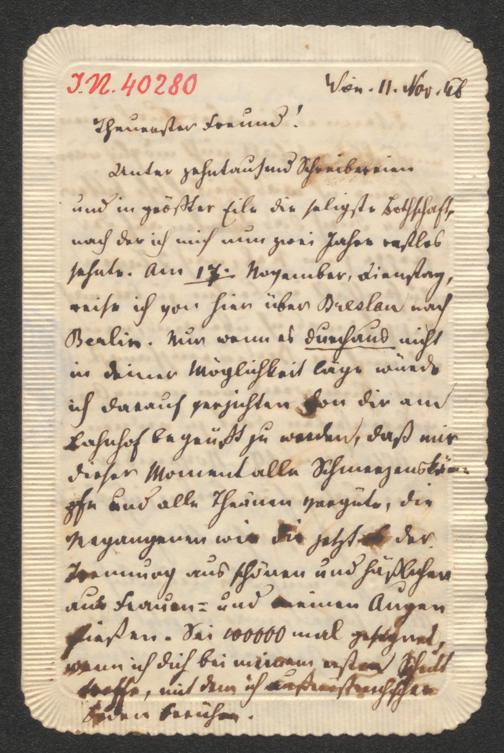 J.N. 40280
Wien. 11. Nov. 46
Theuerster Freund!
Unter zehntausend Schreibereien
und in größter Eile die seligste Bothschaft,
nach der ich mich nun zwei Jahre rastlos
sehnte. Am 17. November, Dienstag,
reise ich von hier über Breslau nach
Berlin. Nur wenn es durchaus nicht
in deiner Möglichkeit läge würde
ich darauf verzichten von dir am
Bahnhof begrüßt zu werden, daß mir
dieser Moment alle Schmerzenskäm-
pfe und alle Thränen vergüte, die
vergangenen wie die jetzt der
Trennung aus schönen und häßlichen
aus Frauen- und meinen Augen
fließen. Sei 100000 mal gesegnet,
wenn ich dich bei meinem ersten Schritt
treffe, mit dem ich
Boden berühre.